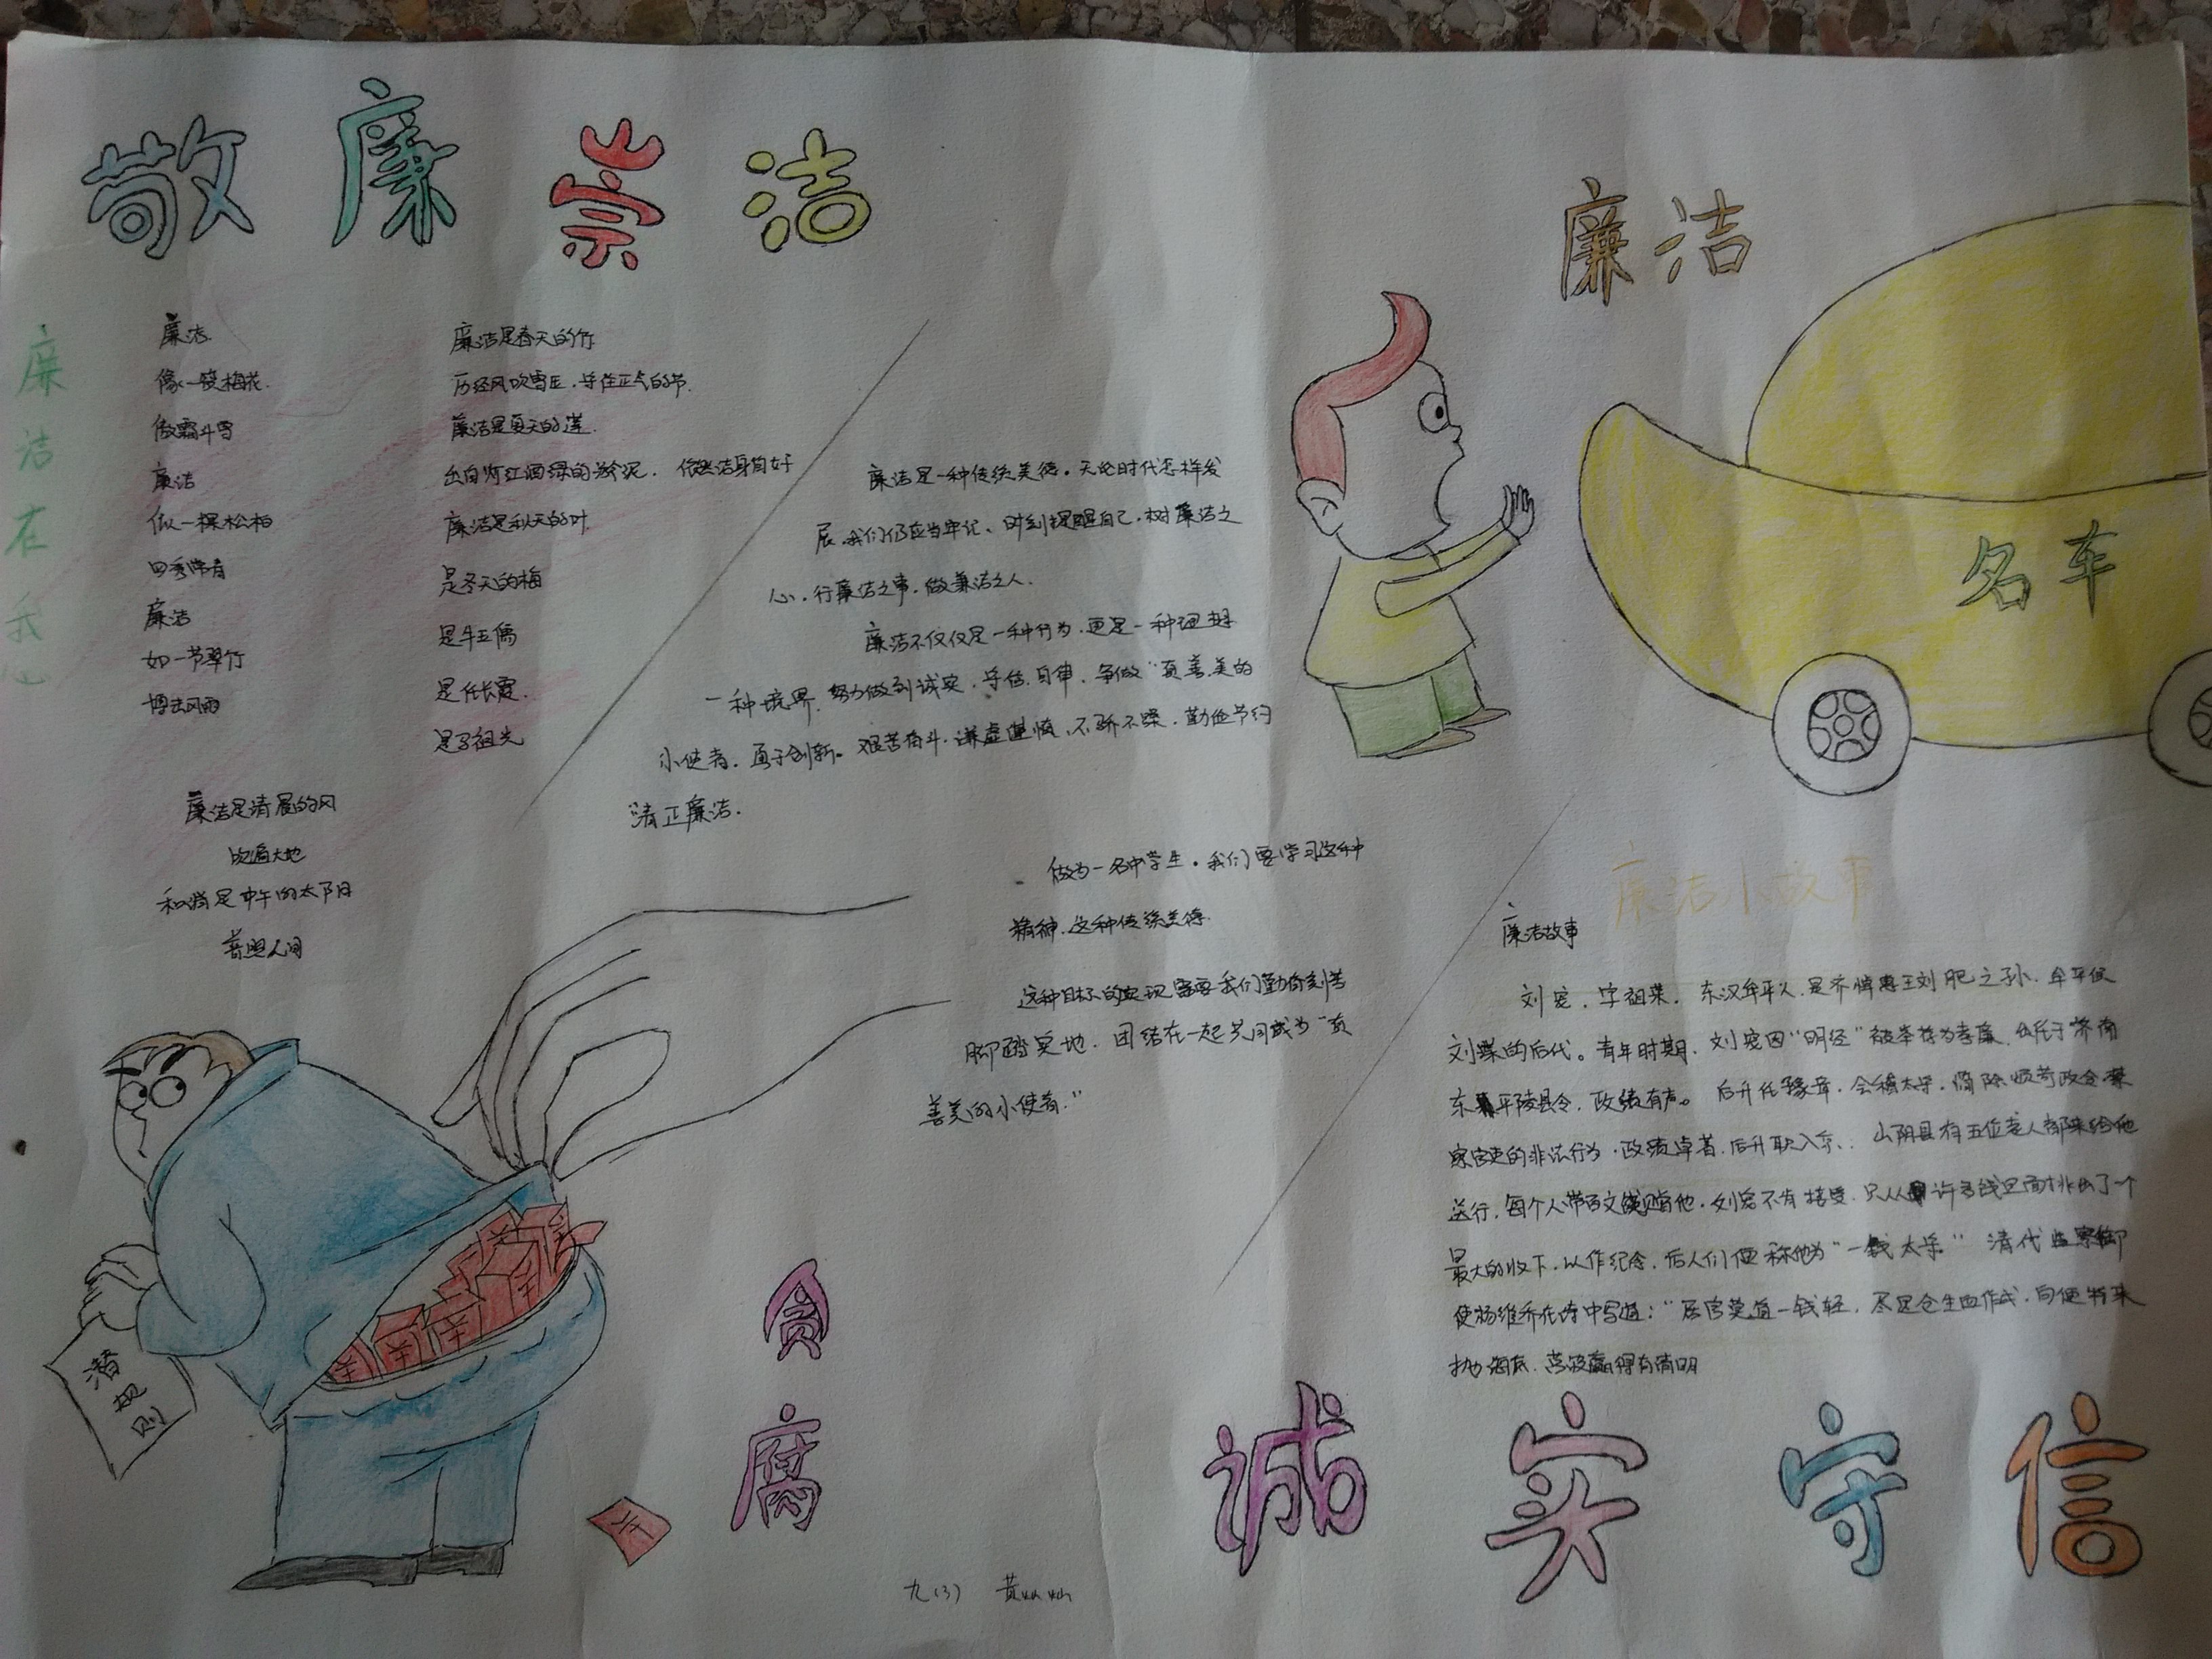 敬廉崇洁
廉洁在我心
廉洁
像一筱梅花.
傲霜斗雪
廉洁
似一棵松柏
四季常青
廉洁
如一节翠竹
搏击风雨
廉洁是清晨的风
吹遍大地
和谐是中午的太阳
普照人间
廉洁是春天的竹
历经风吹雪压.守住正气的节.
廉洁是夏天的莲.
出自灯红酒绿的淤泥. 依然洁身自好
廉洁是秋天的叶
是冬天的梅
是牛玉儒
是任长霞.
是孔祖光
廉洁是一种传统美德.无论时代怎样发
展.我们仍应当牢记、时刻提醒自己.树廉洁之
心.行廉洁之事.做廉洁之人.
廉洁不仅仅是一种行为.更是一种理想
一种境界.努力做到诚实.守信.自律.争做“真善美的
小使者.勇于创新。艰苦奋斗.谦虚谨慎.不骄不躁.勤俭节约
清正廉洁.
做为一名中学生.我们要学习这种
精神.这种传统美德.
这种目标的实现需要我们勤奋刻苦
脚踏实地.团结在一起共同成为“真
善美的小使者.”
廉洁
名车
廉洁小故事
廉洁故事
刘宠.字祖荣. 东汉牟平人.是齐悼惠王刘肥之孙.牟平侯
刘渫的后代。青年时期.刘宠因“明经”被举荐为孝廉.出任于济南
东平陵县令.政绩有声。 后升任豫章.会稽太守.简除烦苛政令.禁
察官吏的非法行为.政绩卓著.后升职入京. 山阴县有五位老人都来给他
送行.每个人带百文钱赠他.刘宠不肯接受.只从许多钱里面挑出了一个
最大的收下.以作纪念.后人们便称他为“一钱太守” 清代监察御
使杨维乔在诗中写道:“居官莫道一钱轻.尽是仓生血作成.向使特来
抛海底.莒波赢得有清明
潜规则
贪腐
诚实守信
九(3) 黄